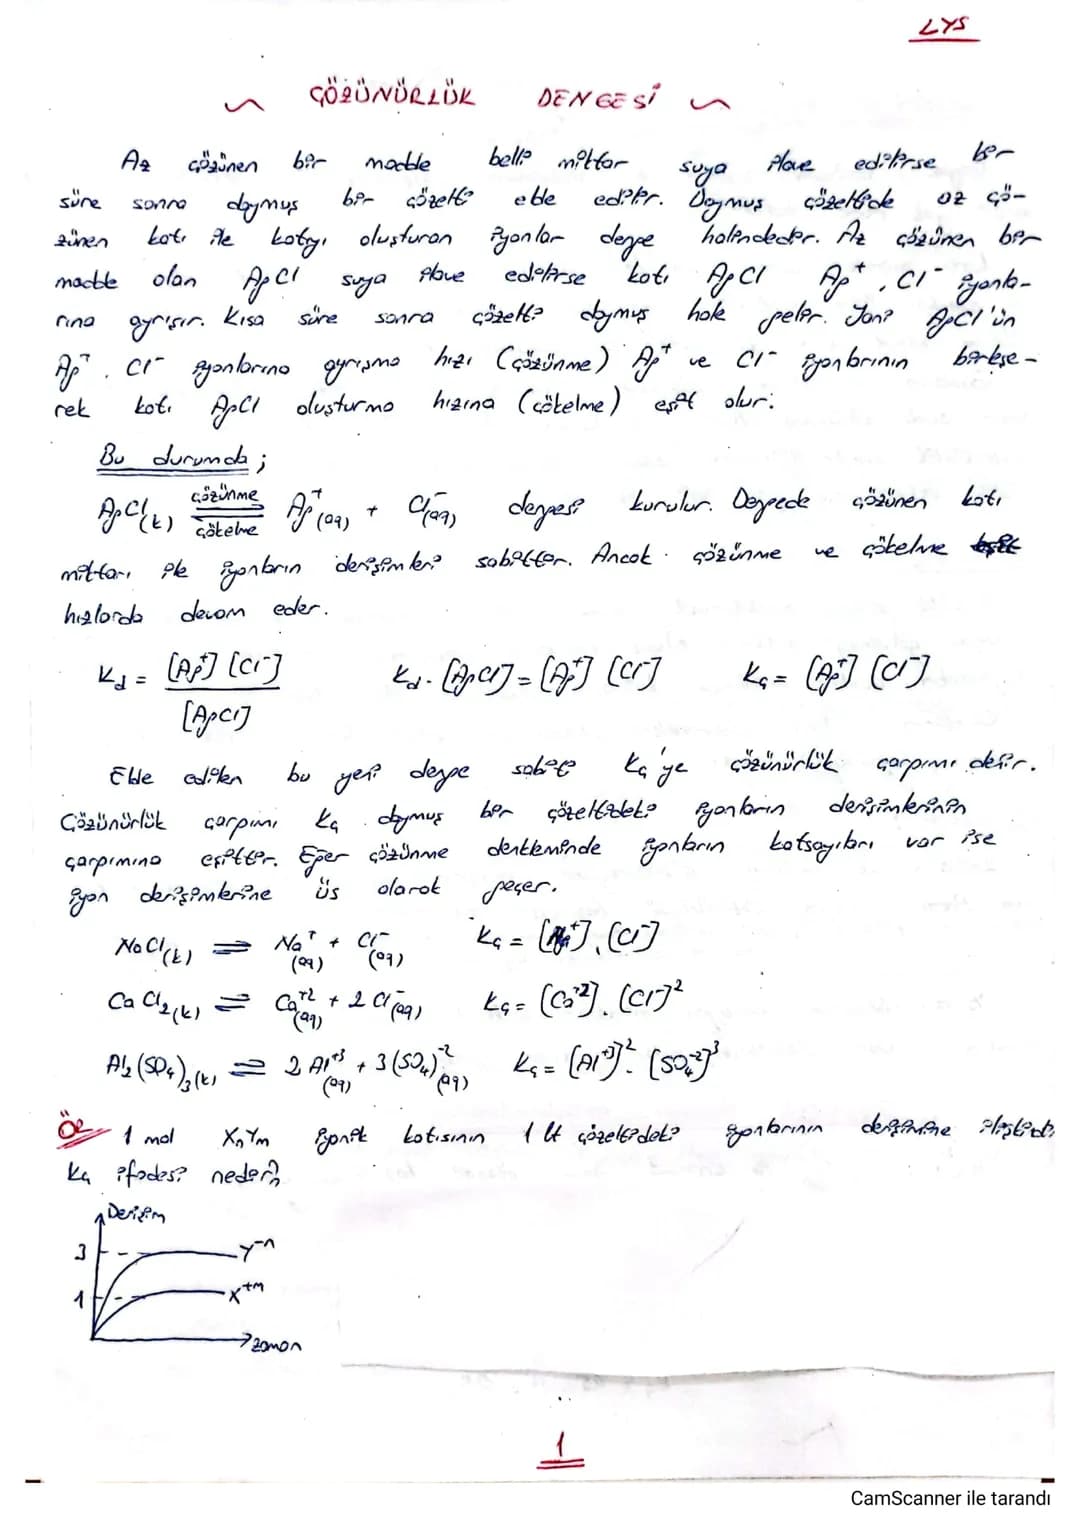 LYS
~ ÇÖZÜNÜRLÜK DENGESİ ~
Az çözünen bir madde belli miktar suya ilave edilirse bir
süre sonra doymuş bir çözelti elde edilir. Doymuş çözeltide az çö-
zünen katı ile katıyı oluşturan iyonlar denge halindedir. Az çözünen bir
madde olan AgCl suya ilave edilirse katı AgCl Ag⁺, Cl⁻ iyonla-
rına ayrışır. Kısa süre sonra çözelti doymuş hale gelir. Yani AgCl'ün
Ag⁺, Cl⁻ iyonlarına ayrışma hızı (çözünme) Ag⁺ ve Cl⁻ iyonlarının birleşe-
rek katı AgCl oluşturma hızına (çökelme) eşit olur.
Bu durumda ;
AgCl(k) ⇌ çözünme çökelme Ag⁺(aq) + Cl⁻(aq) dengesi kurulur. Dengede çözünen katı
miktarı ile iyonların derişimleri sabittir. Ancak çözünme ve çökelme eşit
hızlarda devam eder.
Kd = [Ag⁺] [Cl⁻] / [AgCl] Kd . [AgCl] = [Ag⁺] [Cl⁻] Kç = [Ag⁺] [Cl⁻]
Elde edilen bu yeni denge sabiti Kç'ye çözünürlük çarpımı denir.
Çözünürlük çarpımı Kç doymuş bir çözeltideki iyonların derişimlerinin
çarpımına eşittir. Eğer çözünme denkleminde iyonların katsayıları var ise
iyon derişimlerine üs olarak geçer.
NaCl(k) ⇌ Na⁺(aq) + Cl⁻(aq) Kç = [Na⁺] . [Cl⁻]
CaCl₂(k) ⇌ Ca⁺²(aq) + 2 Cl⁻(aq) Kç = [Ca⁺²] . [Cl⁻]²
Al₂(SO₄)₃(k) ⇌ 2 Al⁺³(aq) + 3(SO₄)⁻²(aq) Kç = [Al⁺³]² . [SO₄⁻²]³
Ör 1 mol XnYm iyonik katısının 1 lt çözeltideki iyonlarının derişimine ilişkindir.
Kç ifadesi nedir?
Derişim
3 Y⁻ⁿ
1 X⁺ᵐ
zaman
1
CamScanner ile tarandı